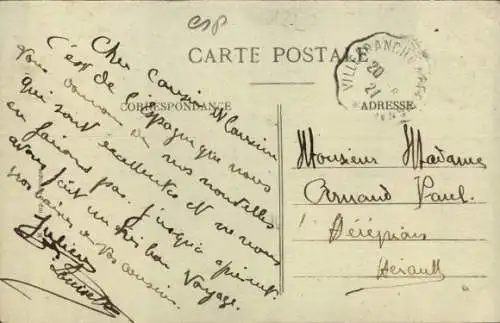 csp
CARTE POSTALE
VILLEFRANCHE
20
21
CORRESPONDANCE
ADRESSE
Cher Cousin Mousieu
C'est de l'Espagne que nous
vous donnons de nos nouvelles
qui sont excellentes et ne vous
en faisons pas. Jusqu'a présent
avons fait un très bon voyage.
gros baisers vos cousins.
Julien
Monsieur Madame
Armand Paul.
à Bérépian
Hérault